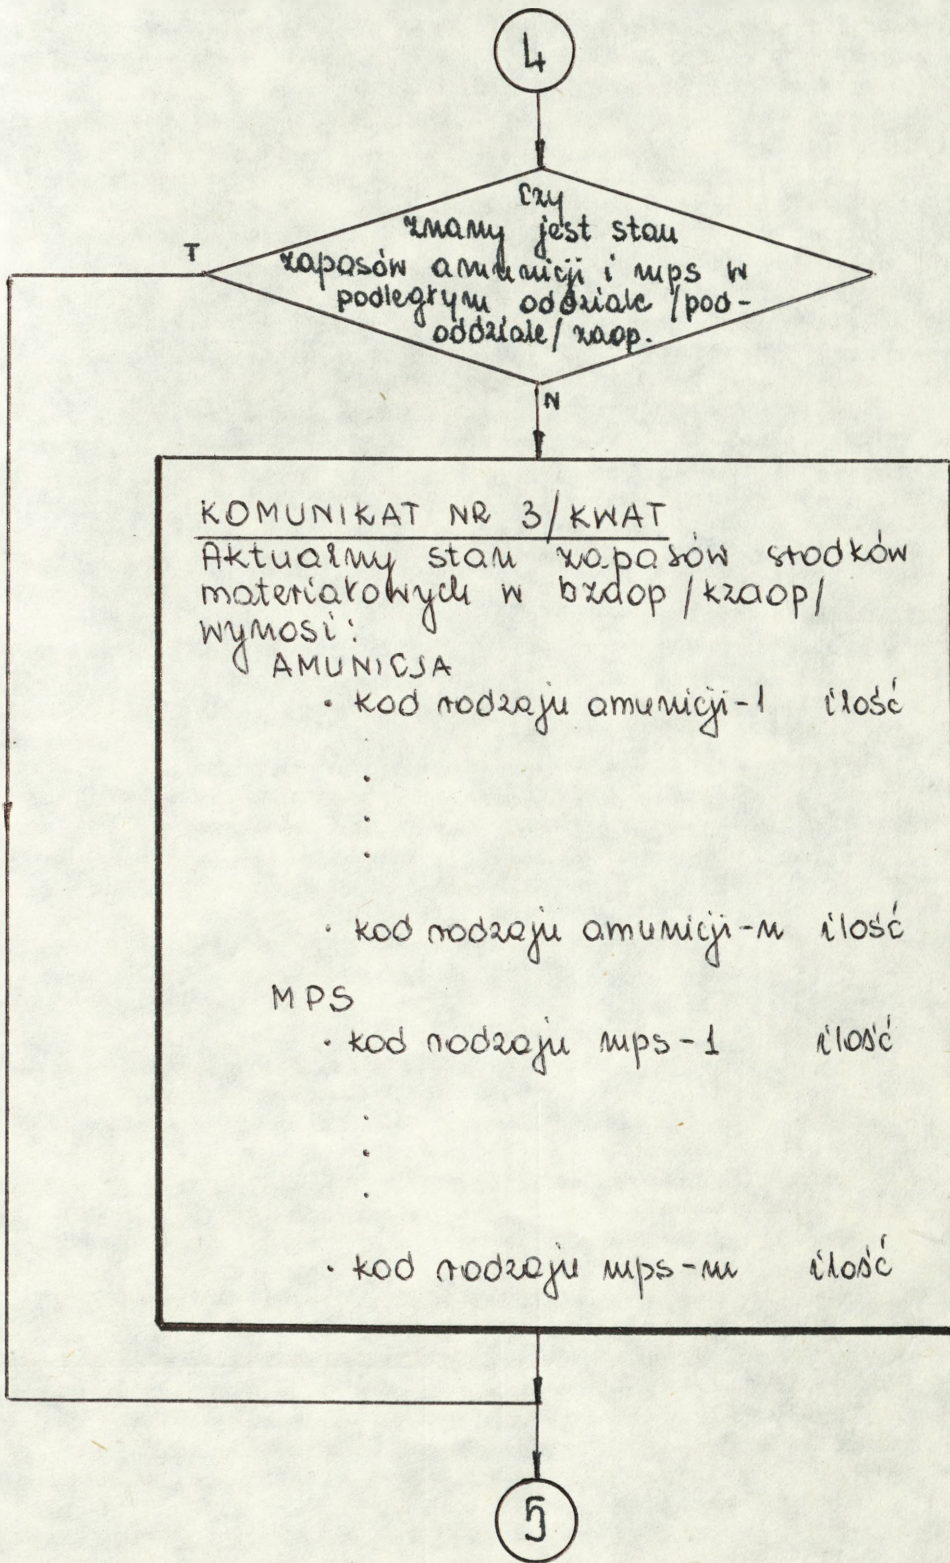 4
Czy
znany jest stan
zapasów amunicji i mps w
podległym oddziale /pod-
oddziale/ zaop.
T
N
KOMUNIKAT NR 3/KWAT
Aktualny stan zapasów środków
materiałowych w bzaop /kzaop/
wynosi:
AMUNICJA
· kod rodzaju amunicji-1 ilość
.
.
.
· kod rodzaju amunicji-n ilość
MPS
· kod rodzaju mps-1 ilość
.
.
.
· kod rodzaju mps-m ilość
5